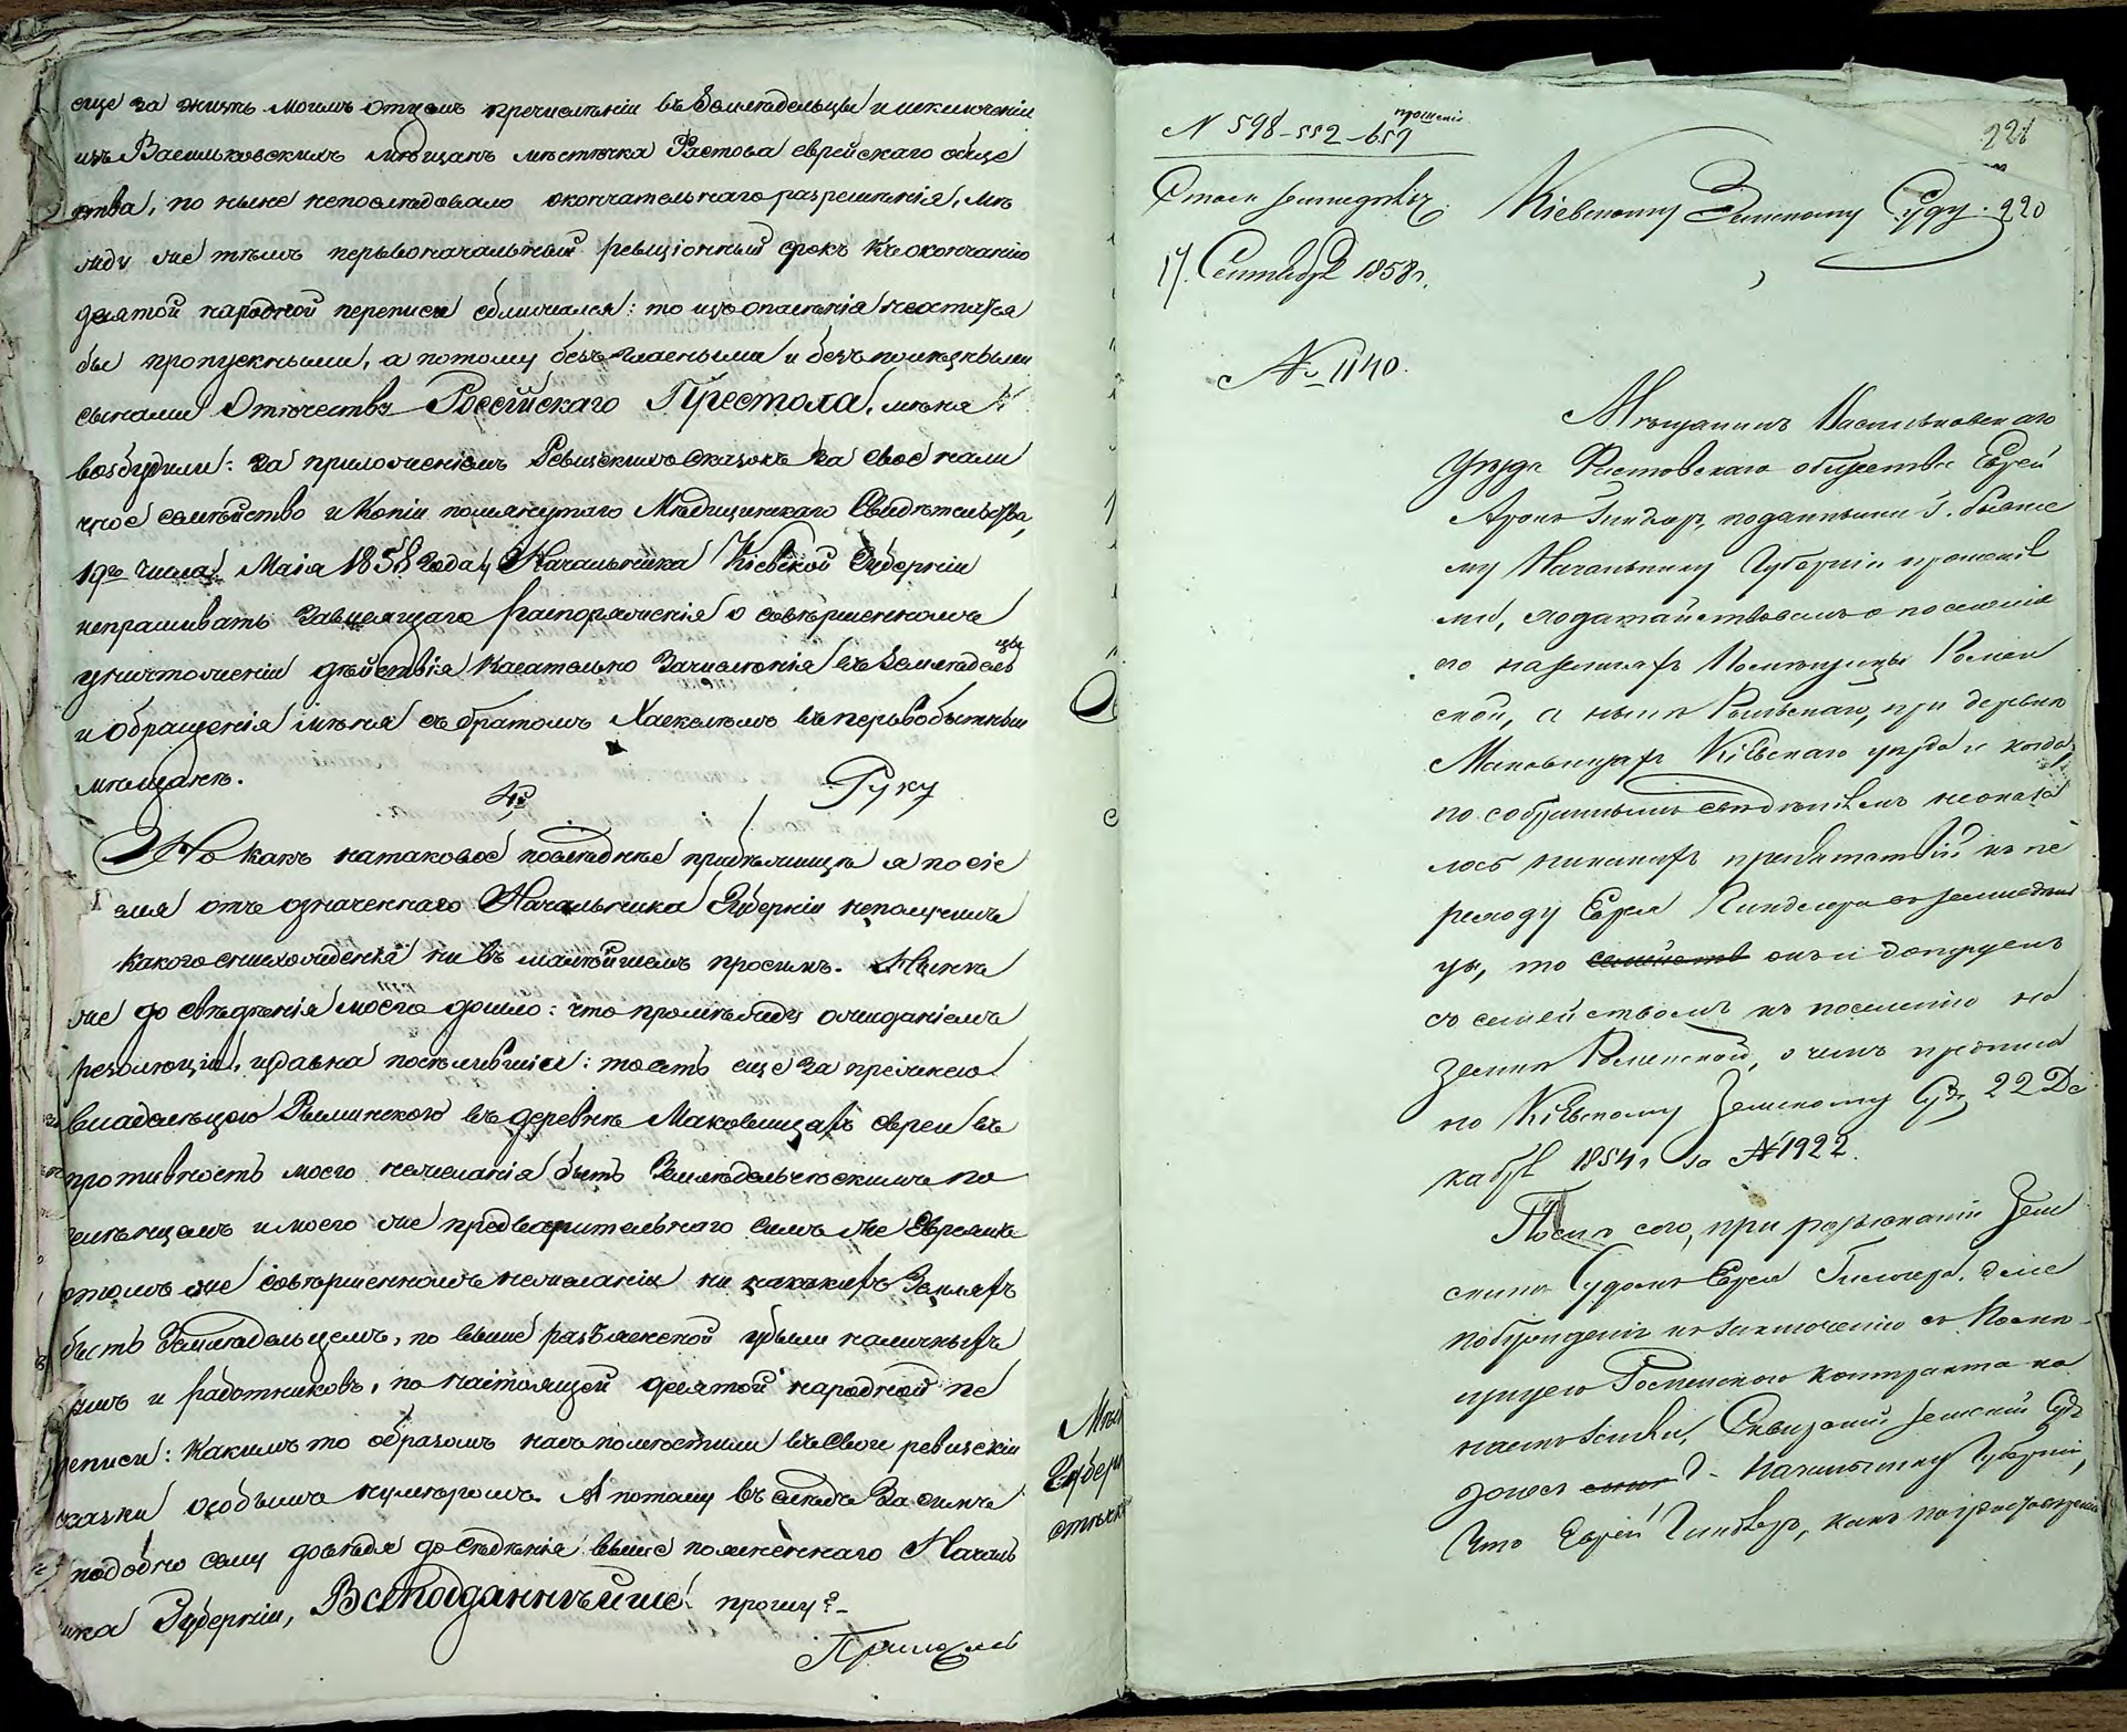 еще за жизнь моимъ отцомъ пречисленіи въ Земледельцы и исключеніи
изъ Васильковскихъ мещанъ местечка Фастова еврейскаго обще
ства, по ныне непоследовало окончательнаго разрешенія, ме
жду же темъ первоначальный ревизіонный срокъ къ окончанію
десятой народной переписи сближался: то изъ опасенія неостатся
бы пропускными, а потому безъ гласными и безъ полезными
сынами Отечества Россійскаго Престола, меня
возбудили: за приложеніемъ Ревизскихъ сказокъ за свое нали
чное семейство и Копіи помянутаго Медицинскаго Свидетельства,
19го числа Маія 1858 года у Начальника Кіевской Губерніи
испрашивать Зависящаго распоряженія о совершенномъ
уничтоженіи действія касательно Зачисленія въ Земледельцы
и обращенія меня съ братомъ Хаскелемъ въ первобытныи
мещане.
4е Руку
Но какъ натаковое последнее прибежище я посіе
время отъ означеннаго Начальника Губерніи неполучилъ
какого снисхожденія ни въ малейшемъ просимъ. Ныне
же до сведенія моего дошло: что промежду ожиданіемъ
резолюціи, издавна поселившіся: тоесть еще за прежнею
владелицею Рыминскою въ деревне Маковищахъ евреи въ
противность моего нежеланія быть Земледельческимъ по
селенцемъ и моего же предварительнаго симъ же Евреямъ
отомъ же совершенномъ нежеланіи ни накакихъ Земляхъ
быть Земледельцемъ, по выше разъясненной убыли наличныхъ
душъ и работниковъ, по настоящей десятой народной пе
реписи: какимъ то образомъ насъ поместили въ свои ревизскіи
сказки особымъ нумеромъ. А потому въ следъ за симъ
подобно сему доведя до сведенія выше помяненнаго Началь
ника Губерніи, Всеподданнейше прошу:
N 598-552-659
прошеніе
221
Кіевскому Земскому Суду. 220
17. Сентября 1858 г.
№ 1140.
Мещанинъ Васильковскаго
Уезда Фастовскаго общества Еврей
поданными Г. бывше
му Начальнику Губерніи прошенія
ми, ходатайствовалъ о поселеніи
его на земляхъ Помещицы
ской, а ныне при деревне
Маковищахъ Кіевскаго уезда и когда
по собраннымъ сведеніямъ неоказа
лось никакихъ препятствій къ пе
реходу Еврея въ земледель
цы, то онъ и допущенъ
съ семействомъ къ поселенію на
земле о чемъ предписа
но Кіевскому Земскому Суду 22 Де
кабря 1854 г за № 1922.
После сего, при
скимъ Судомъ Еврея
побужденіи къ заключенію съ Поме
щицею контракта на
наемъ земли, Земскій Судъ
донесъ Г. Начальнику Губерніи,
что Еврей